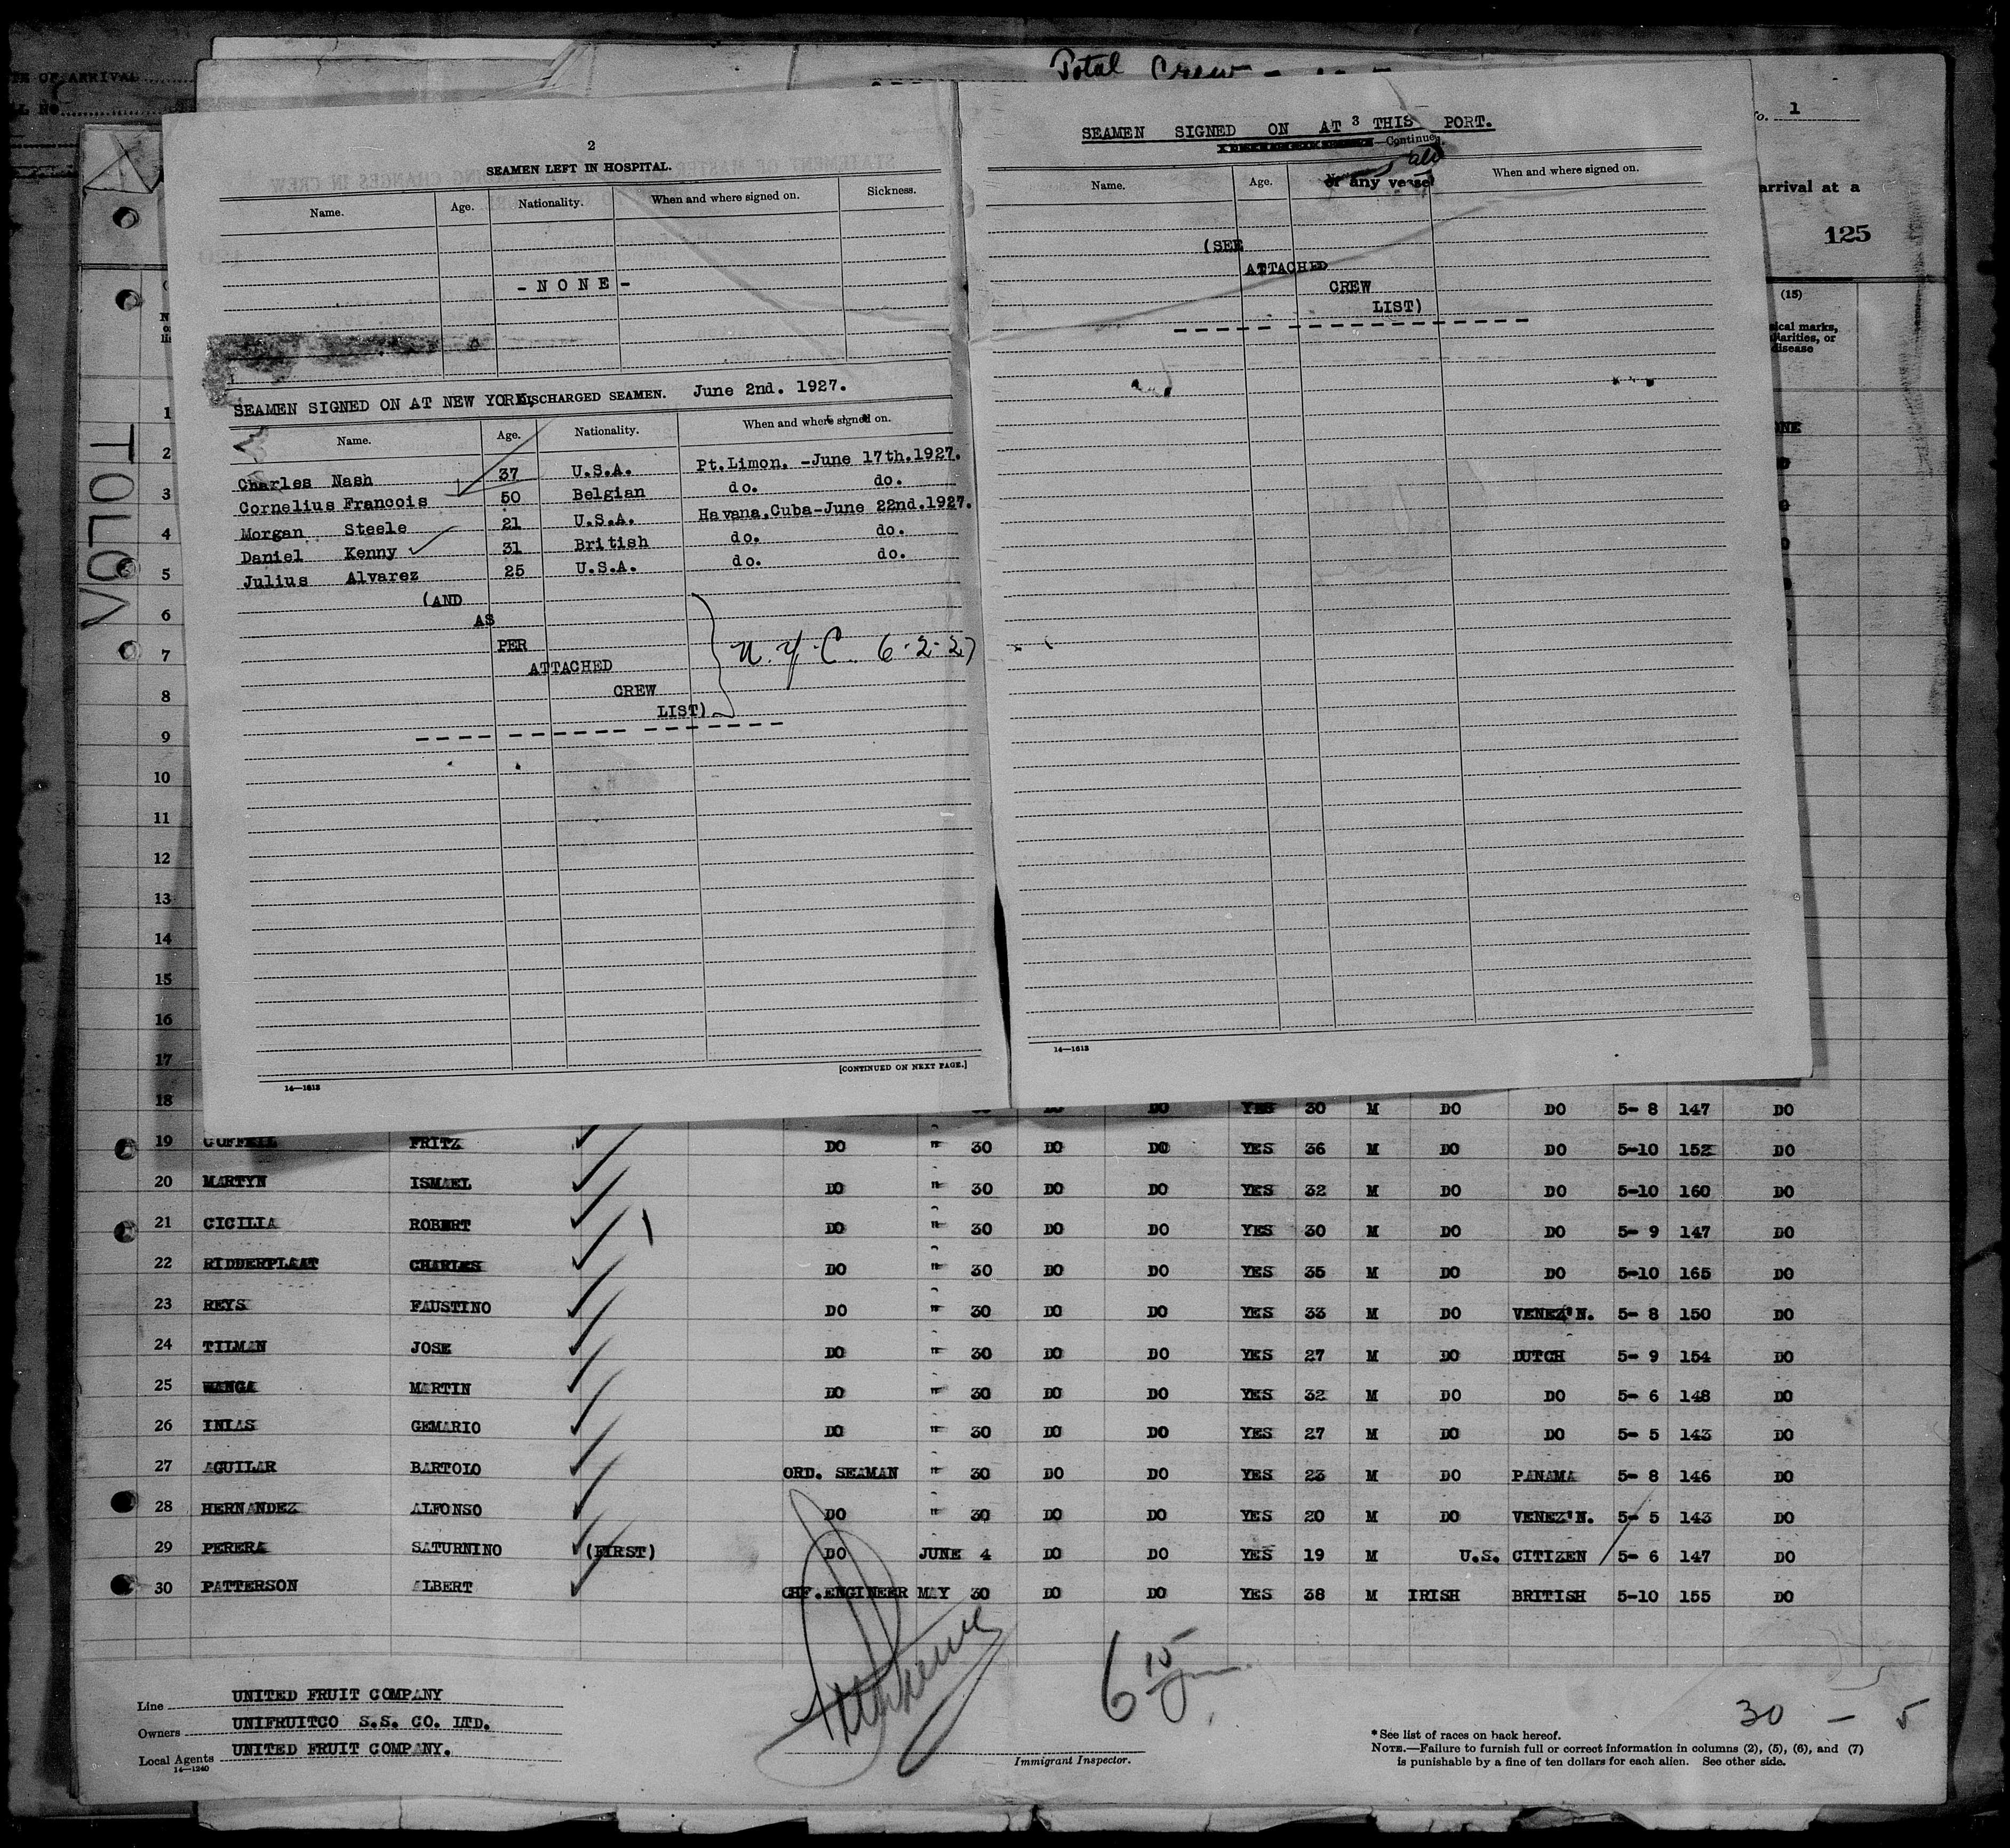 TE OF ARRIVAL
L No.
Total Crew -
No. 1
arrival at a
125
(15)
sical marks,
liarities, or
disease
TOLOA
2
SEAMEN LEFT IN HOSPITAL.
Name. Age. Nationality. When and where signed on. Sickness.
- N O N E -
SEAMEN SIGNED ON AT NEW YORK, DISCHARGED SEAMEN. June 2nd. 1927.
Name. Age. Nationality. When and where signed on.
Charles Nash 37 U.S.A. Pt.Limon. -June 17th.1927.
Cornelius Francois 50 Belgian do. do.
Morgan Steele 21 U.S.A. Havana,Cuba-June 22nd.1927.
Daniel Kenny 31 British do. do.
Julius Alvarez 25 U.S.A. do. do.
(AND
AS
PER
ATTACHED
CREW
LIST)
N.Y.C. 6-2-27
[CONTINUED ON NEXT PAGE.]
14—1613
SEAMEN SIGNED ON AT 3 THIS PORT.
—Continue
Name. Age. or any vessel When and where signed on.
(SEE
ATTACHED
CREW
LIST)
14—1613
1
2
3
4
5
6
7
8
9
10
11
12
13
14
15
16
17
18 DO YES 30 M DO DO 5- 8 147 DO
19 COFFEIL FRITZ DO " 30 DO DO YES 36 M DO DO 5-10 152 DO
20 MARTYN ISMAEL DO " 30 DO DO YES 32 M DO DO 5-10 160 DO
21 CICILIA ROBERT DO " 30 DO DO YES 30 M DO DO 5- 9 147 DO
22 RIDDERPLAAT CHARLES DO " 30 DO DO YES 35 M DO DO 5-10 165 DO
23 REYS FAUSTINO DO " 30 DO DO YES 33 M DO VENEZ'N. 5- 8 150 DO
24 TILMAN JOSE DO " 30 DO DO YES 27 M DO DUTCH 5- 9 154 DO
25 WANGA MARTIN DO " 30 DO DO YES 32 M DO DO 5- 6 148 DO
26 INIAS GEMARIO DO " 30 DO DO YES 27 M DO DO 5- 5 143 DO
27 AGUILAR BARTOLO ORD. SEAMAN " 30 DO DO YES 23 M DO PANAMA 5- 8 146 DO
28 HERNANDEZ ALFONSO DO " 30 DO DO YES 20 M DO VENEZ'N. 5- 5 143 DO
29 PERERA SATURNINO (FIRST) DO JUNE 4 DO DO YES 19 M U.S. CITIZEN 5- 6 147 DO
30 PATTERSON ALBERT CHF.ENGINEER MAY 30 DO DO YES 38 M IRISH BRITISH 5-10 155 DO
Line UNITED FRUIT COMPANY
Owners UNIFRUITCO S.S. CO. LTD.
Local Agents UNITED FRUIT COMPANY.
14—1240
Immigrant Inspector.
30 - 5
*See list of races on back hereof.
NOTE.—Failure to furnish full or correct information in columns (2), (5), (6), and (7)
is punishable by a fine of ten dollars for each alien. See other side.